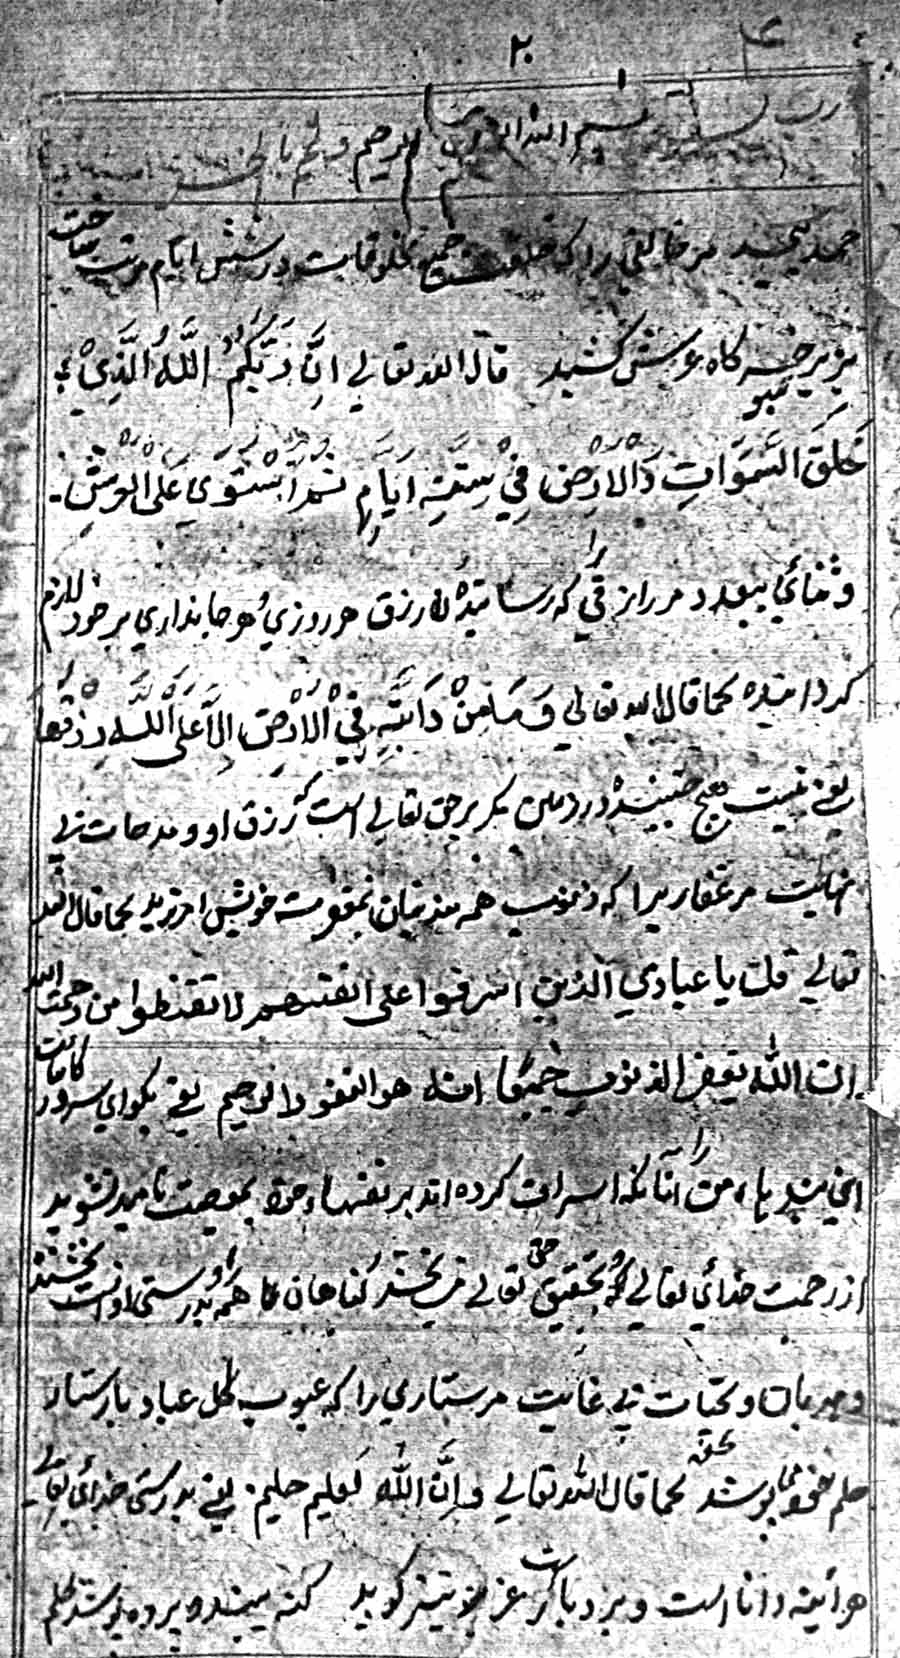 ۲۰ ۴
رب بسم الله الرحمن الرحیم و تمم بالخیر
حمد بیحد مر خالقی را که خلقت جمیع مخلوقات در شش ایام مرتب ساخت
کاه عرش کشید قال الله تعالی اِنَّ رَبَّکُمُ اللَّهُ الَّذِیْ
خَلَقَ السَّمَوَاتِ وَالْاَرْضَ فِیْ سِتَّةِ اَیَّامٍ ثُمَّ اسْتَوَی عَلَی الْعَرْشِ
و ثنای بیعدد مر رازقی را که رسانیدن رزق هر روزی هر جانداری بر خود لازم
کردانیده کما قال الله تعالی وَ مَا مِنْ دَابَّةٍ فِی الْاَرْضِ اِلَّا عَلَی اللَّهِ رِزْقُهَا
یعنی نیست هیچ جنبنده در زمین مکر بر حق تعالی است که رزق او و مدحات بی
نهایت مر غفاریرا که ذنوب همه بمغفرت خویش امرزید کما قال الله
تعالی قل یا عبادی الذین اسرفوا علی انفسهم لا تقنطوا من رحمة الله
ان الله یغفر الذنوب جمیعا انه هو الغفور الرحیم یعنی بکو ای سرور کاینات
من آنانکه را اسراف کرده اند بر نفسهاء خود بمعصیت نامید نشوید
از رحمت خدای تعالی که بتحقیق حق تعالی می بخشد کناهان را همه و بدرستی او است بخشنده
و مهربان و تحیات بی غایت مر ستاری را که عیوب کل عباد باستار
حلم پوشد کما قال الله تعالی و اِنَّ الله لعلیم حلیم یعنی بدرستی خدای تعالی
هرآئینه دانا است و بردبار است کوید کنه بیند و پرده پوشد بحلم